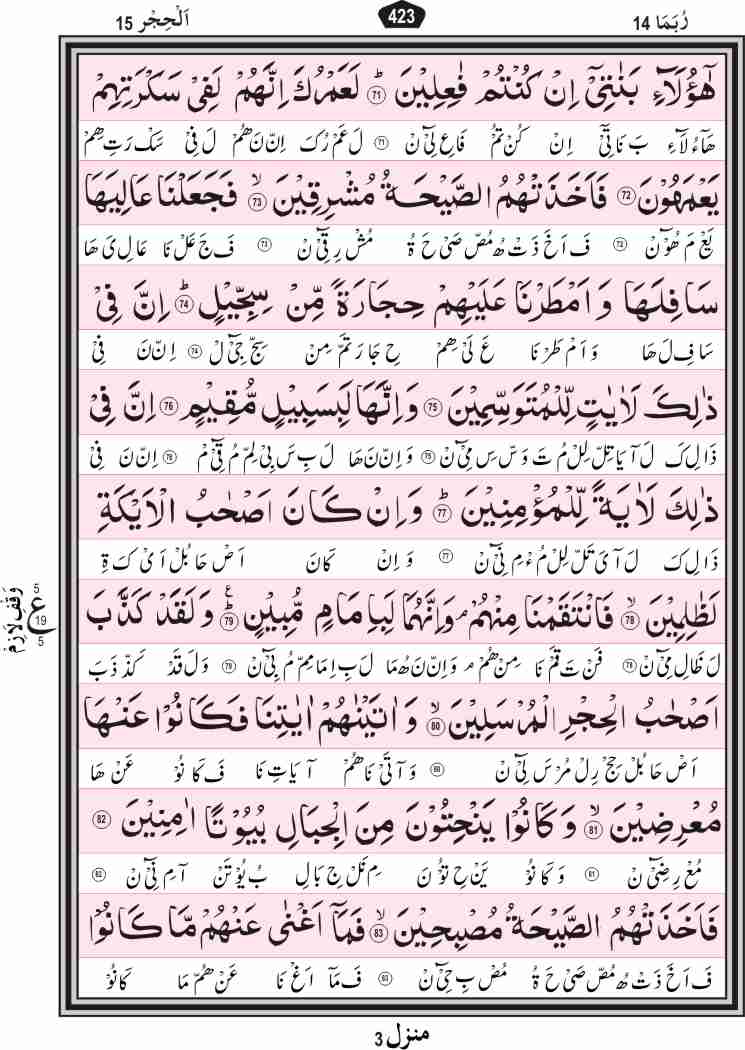 رُبَمَا 14
423
اَلْحِجْر 15
هٰٓؤُلَآءِ بَنٰتِیْۤ اِنْ كُنْتُمْ فٰعِلِیْنَ ؕ 71 لَعَمْرُكَ اِنَّهُمْ لَفِیْ سَكْرَتِهِمْ
هَآءُ لَآءِ بَ نَا تِیْٓ اِنْ كُنْ تُمْ فَا عِ لِیْٓ نْ 71 لَ عَمْ رُ كَ اِنْ نَ هُمْ لَ فِیْ سَكْ رَ تِ هِمْ
یَعْمَهُوْنَ 72 فَاَخَذَتْهُمُ الصَّیْحَةُ مُشْرِقِیْنَ ۙ 73 فَجَعَلْنَا عَالِیَهَا
یَعْ مَ هُوْٓ نْ 72 فَ اَ خَ ذَتْ هُ مُصْ صَیْ حَ ةُ مُشْ رِ قِیْٓ نْ 73 فَ جَ عَلْ نَا عَا لِ یَ هَا
سَافِلَهَا وَ اَمْطَرْنَا عَلَیْهِمْ حِجَارَةً مِّنْ سِجِّیْلٍ ؕ 74 اِنَّ فِیْ
سَا فِ لَ هَا وَ اَمْ طَرْ نَا عَ لَیْ هِمْ حِ جَا رَ تَمْ مِنْ سِجْ جِیْٓ لْ 74 اِنْ نَ فِیْ
ذٰلِكَ لَاٰیٰتٍ لِّلْمُتَوَسِّمِیْنَ 75 وَ اِنَّهَا لَبِسَبِیْلٍ مُّقِیْمٍ 76 اِنَّ فِیْ
ذَا لِ كَ لَ آ یَا تِلْ لِلْ مُ تَ وَسْ سِ مِیْٓ نْ 75 وَ اِنْ نَ هَا لَ بِ سَ بِیْ لِمْ مُ قِیْٓ مْ 76 اِنْ نَ فِیْ
ذٰلِكَ لَاٰیَةً لِّلْمُؤْمِنِیْنَ ؕ 77 وَ اِنْ كَانَ اَصْحٰبُ الْاَیْكَةِ
ذَا لِ كَ لَ آ یَ تَلْ لِلْ مُ ءْ مِ نِیْٓ نْ 77 وَ اِنْ كَانَ اَصْ حَا بُلْ اَیْ كَ ةِ
لَظٰلِمِیْنَ ۙ 78 فَانْتَقَمْنَا مِنْهُمْ ۘ وَ اِنَّهُمَا لَبِاِمَامٍ مُّبِیْنٍ ؕ 79 وَ لَقَدْ كَذَّبَ
لَ ظَا لِ مِیْٓ نْ 78 فَنْ تَ قَمْ نَا مِنْ هُمْ ۘ وَ اِنْ نَ هُ مَا لَ بِ اِ مَا مِمْ مُ بِیْٓ نْ 79 وَ لَ قَدْ كَذْ ذَ بَ
ع 5 19 5
وقف لازم
اَصْحٰبُ الْحِجْرِ الْمُرْسَلِیْنَ ۙ 80 وَ اٰتَیْنٰهُمْ اٰیٰتِنَا فَكَانُوْا عَنْهَا
اَصْ حَا بُلْ حِجْ رِلْ مُرْ سَ لِیْٓ نْ 80 وَ آ تَیْ نَا هُمْ آ یَا تِ نَا فَ كَا نُوْ عَنْ هَا
مُعْرِضِیْنَ ۙ 81 وَ كَانُوْا یَنْحِتُوْنَ مِنَ الْجِبَالِ بُیُوْتًا اٰمِنِیْنَ 82
مُعْ رِ ضِیْٓ نْ 81 وَ كَا نُوْ یَنْ حِ تُوْ نَ مِ نَلْ جِ بَا لِ بُ یُوْ تَنْ آ مِ نِیْٓ نْ 82
فَاَخَذَتْهُمُ الصَّیْحَةُ مُصْبِحِیْنَ ۙ 83 فَمَاۤ اَغْنٰی عَنْهُمْ مَّا كَانُوْا
فَ اَ خَ ذَتْ هُ مُصْ صَیْ حَ ةُ مُصْ بِ حِیْٓ نْ 83 فَ مَآ اَغْ نَا عَنْ هُمْ مَا كَا نُوْ
منزل 3